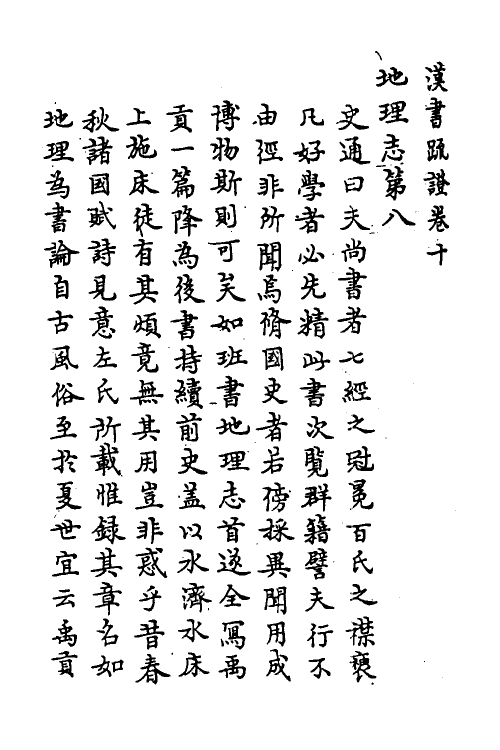 漢書疏證卷十
地理志第八
史通曰夫尚書者七經之冠冕百氏之襟褎
凡好學者必先精此書次覽群籍譬夫行不
由徑非所聞焉脩國史者若傍採異聞用成
博物斯則可矣如班書地理志首遂全寫禹
貢一篇降為後書持續前史蓋以水濟水床
上施床徒有其煩竟無其用豈非惑乎昔春
秋諸國賦詩見意左氏所載惟錄其章名如
地理為書論自古風俗至於夏世宜云禹貢